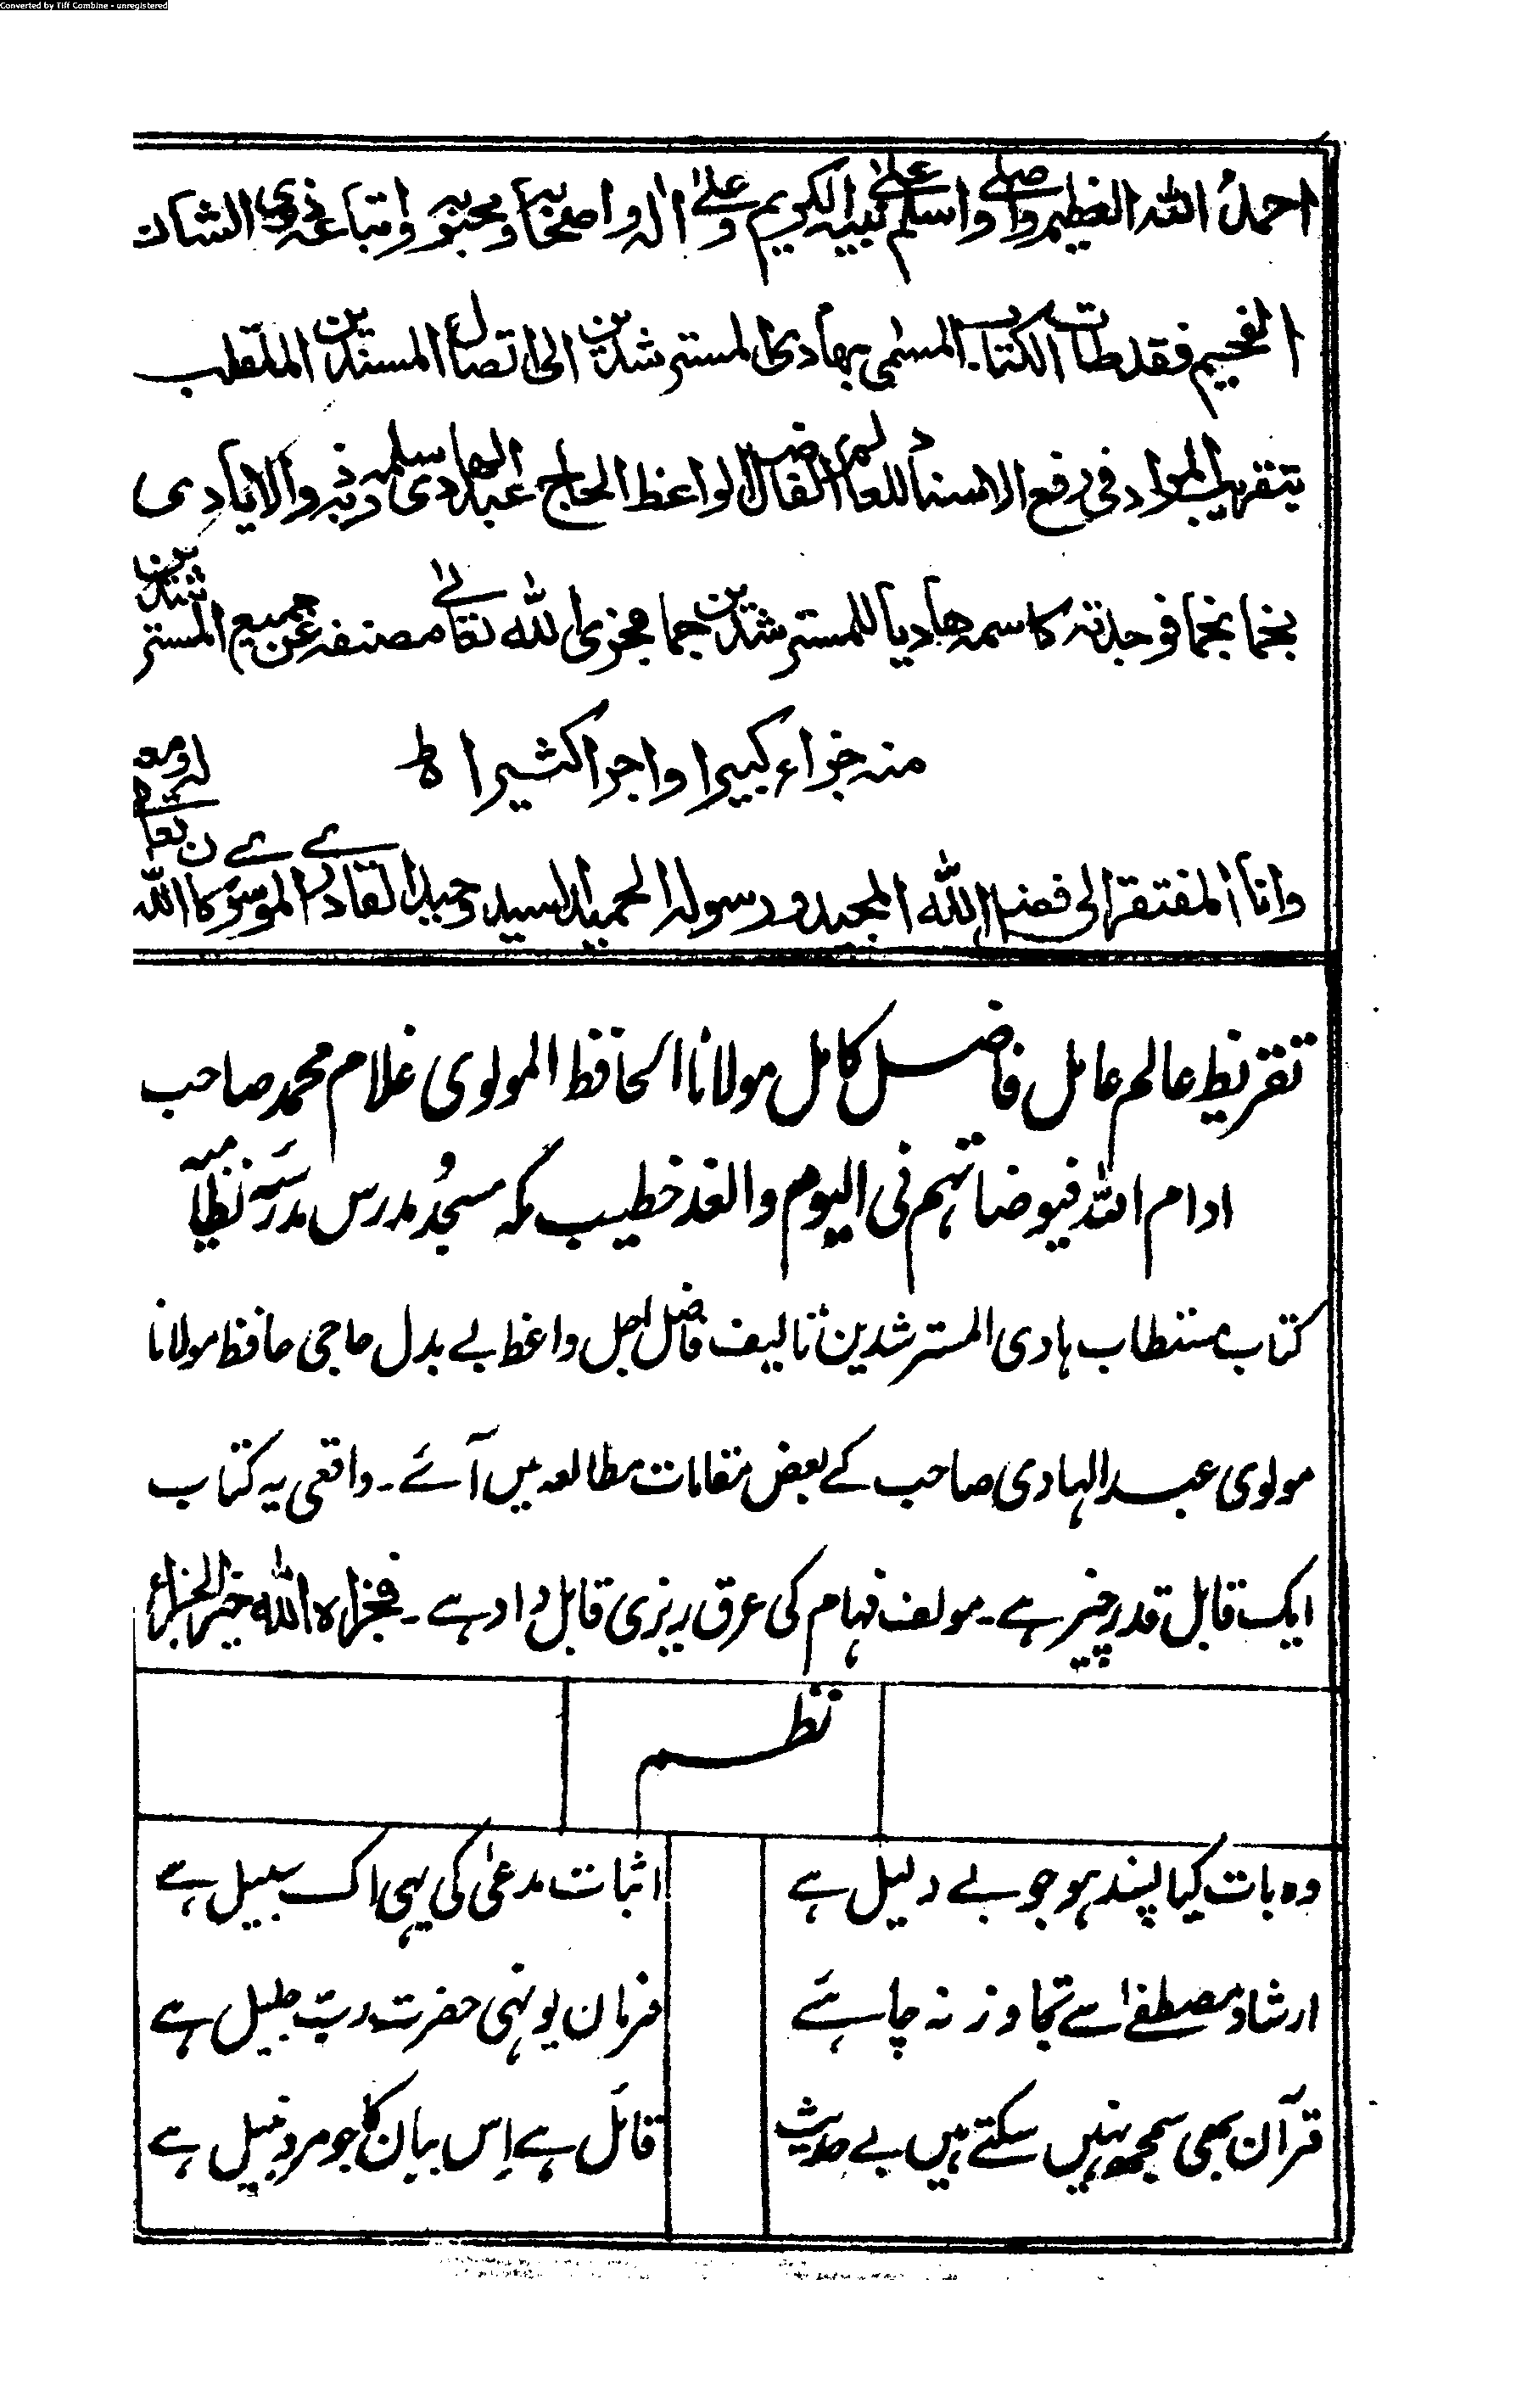 Converted by Tiff Combine - unregistered
احمد اللہ العظیم واصلی واسلم علیٰ نبیہ الکریم وعلیٰ الہ واصحابہ ومحبیہ واتباعہ ذوی الشان
الفخیم فقد طالعت الکتاب المسمی بہادی المسترشدین الی اتصال المسندین الملقب
بتقریب المراد فی رفع الاسناد للعالم الفاضل الواعظ الحاج عبد الہادی سلمہ ذو الایادی
نجما نجما فوجدتہ کاسمہ ہادیا للمسترشدین جما فجزی اللہ تعالیٰ مصنفہ عن جمیع المسترشدین
منہ جزاء کبیرا واجرا کثیرا ط
وانا المفتقر الی فضل اللہ المجید ورسولہ الحمید السید وحید القادری الموسوی کان اللہ تعالیٰ لہ ومعہ
تقریظ عالم عامل فاضل کامل مولانا الحافظ المولوی غلام محمد صاحب
ادام اللہ فیوضاتہم فی الیوم والغد خطیب مکہ مسجد و مدرس مدرسہ نظامیہ
کتاب مستطاب ہادی المسترشدین تالیف فاضل اجل واعظ بے بدل حاجی حافظ مولانا
مولوی عبد الہادی صاحب کے بعض مقامات مطالعہ میں آئے ۔ واقعی یہ کتاب
ایک قابل قدر چیز ہے ۔ مولف فہام کی عرق ریزی قابل داد ہے ۔ فجزاہ اللہ خیر الجزاء
نظم
وہ بات کیا پسند ہو جو بے دلیل ہے اثبات مدعیٰ کی یہی اک سبیل ہے
ارشاد مصطفےٰ سے تجاوز نہ چاہئے فرمان یونہی حضرت رب جلیل ہے
قرآن بھی سمجھ نہیں سکتے ہیں بے حدیث قائل ہے اِس بیان کا جو مرد نبیل ہے